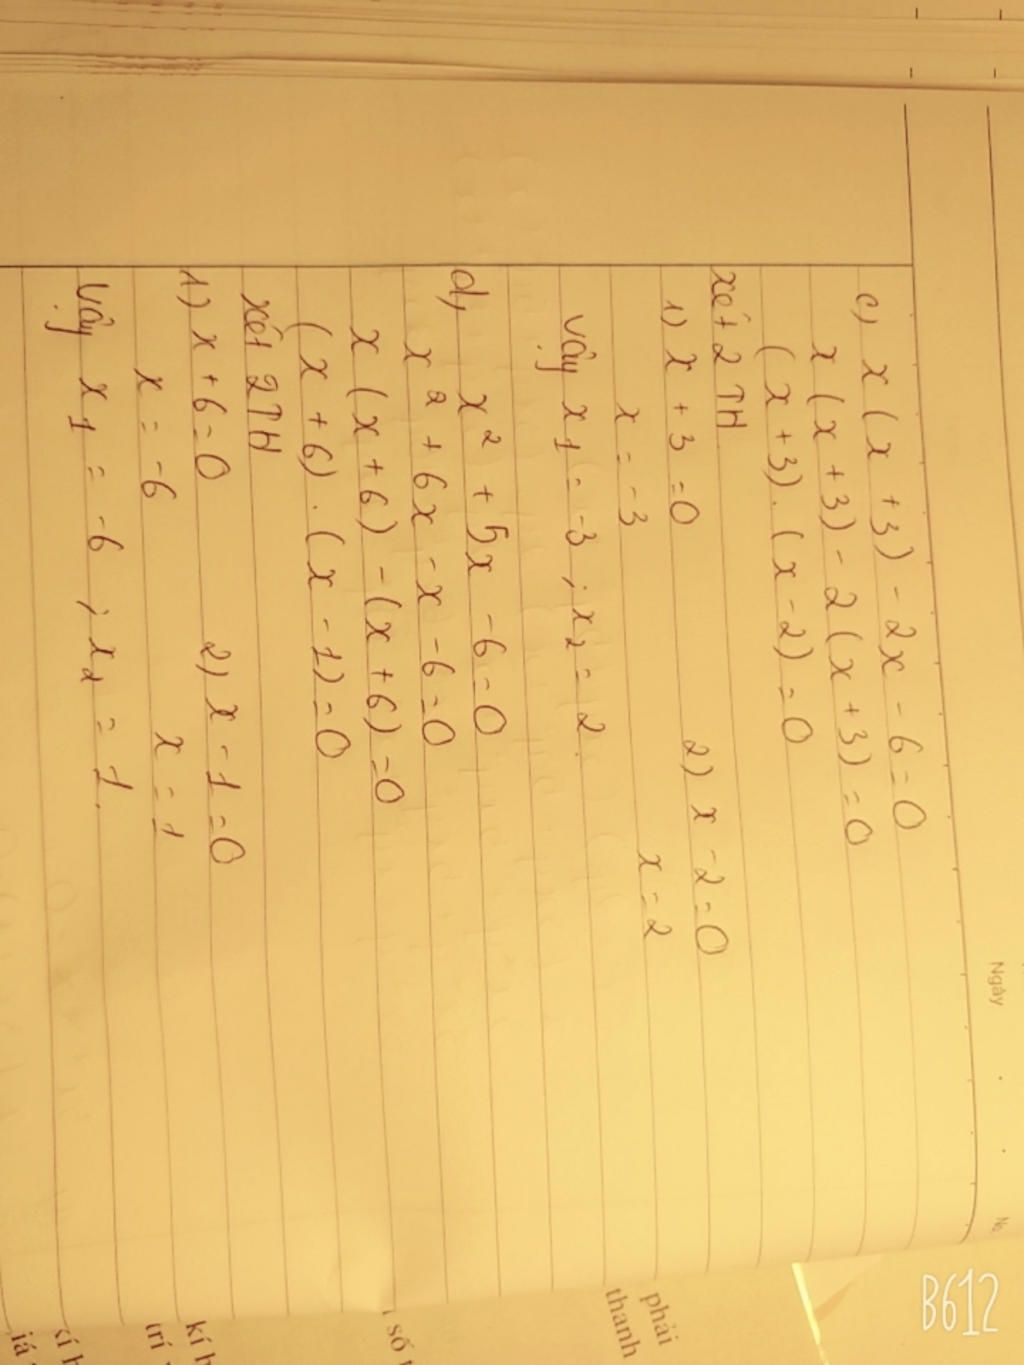 Ngày
No
c) x(x+3) - 2x - 6 = 0
x(x+3) - 2(x+3) = 0
(x+3).(x-2) = 0
xét 2 TH
1) x+3 = 0 2) x-2 = 0
x = -3 x = 2
Vậy x1 = -3 ; x2 = 2.
d) x² + 5x - 6 = 0
x² + 6x - x - 6 = 0
x(x+6) - (x+6) = 0
(x+6).(x-1) = 0
xét 2TH
1) x+6 = 0 2) x-1 = 0
x = -6 x = 1
Vậy x1 = -6 ; x2 = 1.
phải
thanh
số
kí h
trí
kí h
iá
B612